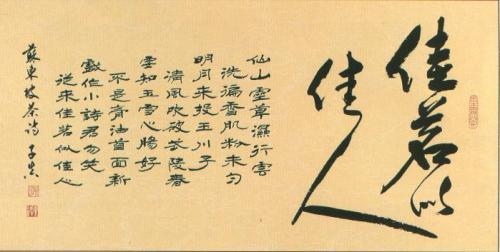 佳茗似
佳人
仙山靈草濕行雲
洗遍香肌粉未勻
明月来投玉川子
清風吹破 陵春
要知玉雪心腸好
不是膏油首面新
戲作小詩君勿笑
從来佳茗似佳人
蘇東坡茶詩